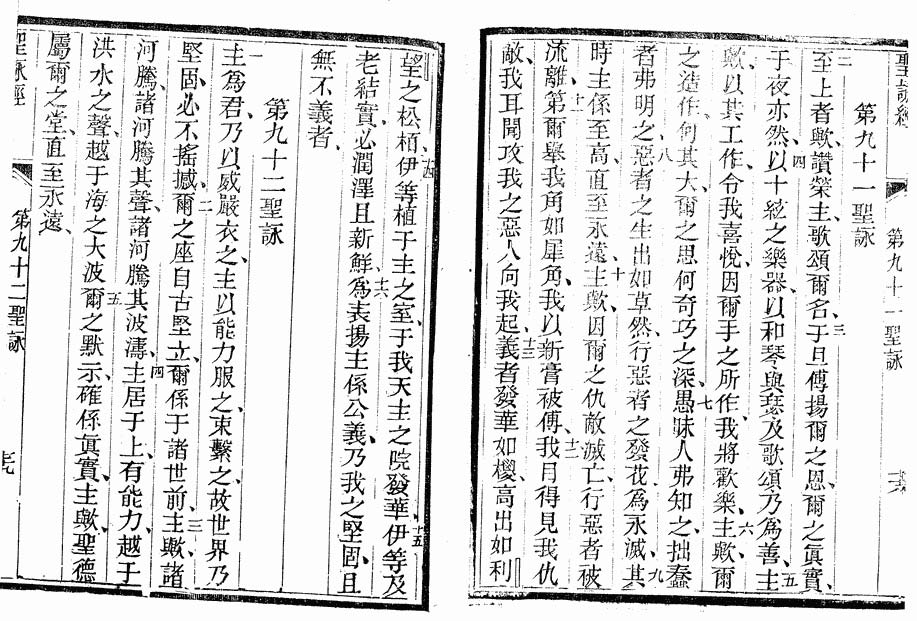 聖詠經 第九十一聖詠
第九十一聖詠
二至上者歟讚榮主、歌頌爾名、三于旦傅揚爾之恩、爾之眞實、
于夜亦然、四以十絃之樂器、以和琴與瑟、及歌頌乃為善、五主
歟、以其工作、令我喜悅、因爾手之所作、我將歡樂、六主歟、爾
之造作、何其大、爾之思何奇巧之深、七愚昧人弗知之、拙蠢
者弗明之、八惡者之生出如草然、行惡者之發花為永滅、九其
時主係至高、直至永遠、十主歟、因爾之仇敵滅亡、行惡者被
流離、十一第爾舉我角如犀角、我以新膏被傅、十二我目得見我仇
敵、我耳聞攻我之惡人向我起、十三義者發華如椶、高出如利
望之松栢、十四伊等植于主之室、于我天主之院發華、十五伊等及
老結實、必潤澤且新鮮、十六為表揚主係公義、乃我之堅固、且
無不義者、
第九十二聖詠
一主為君、乃以威嚴衣之、主以能力服之、束繫之、故世界乃
堅固、必不搖撼、二爾之座自古堅立、爾係于諸世前、三主歟、諸
河騰、諸河騰其聲、諸河騰其波濤、四主居于上、有能力、越于
洪水之聲、越于海之大波、五爾之默示、確係眞實、主歟、聖德
屬爾之堂、直至永遠、
聖詠經 第九十二聖詠